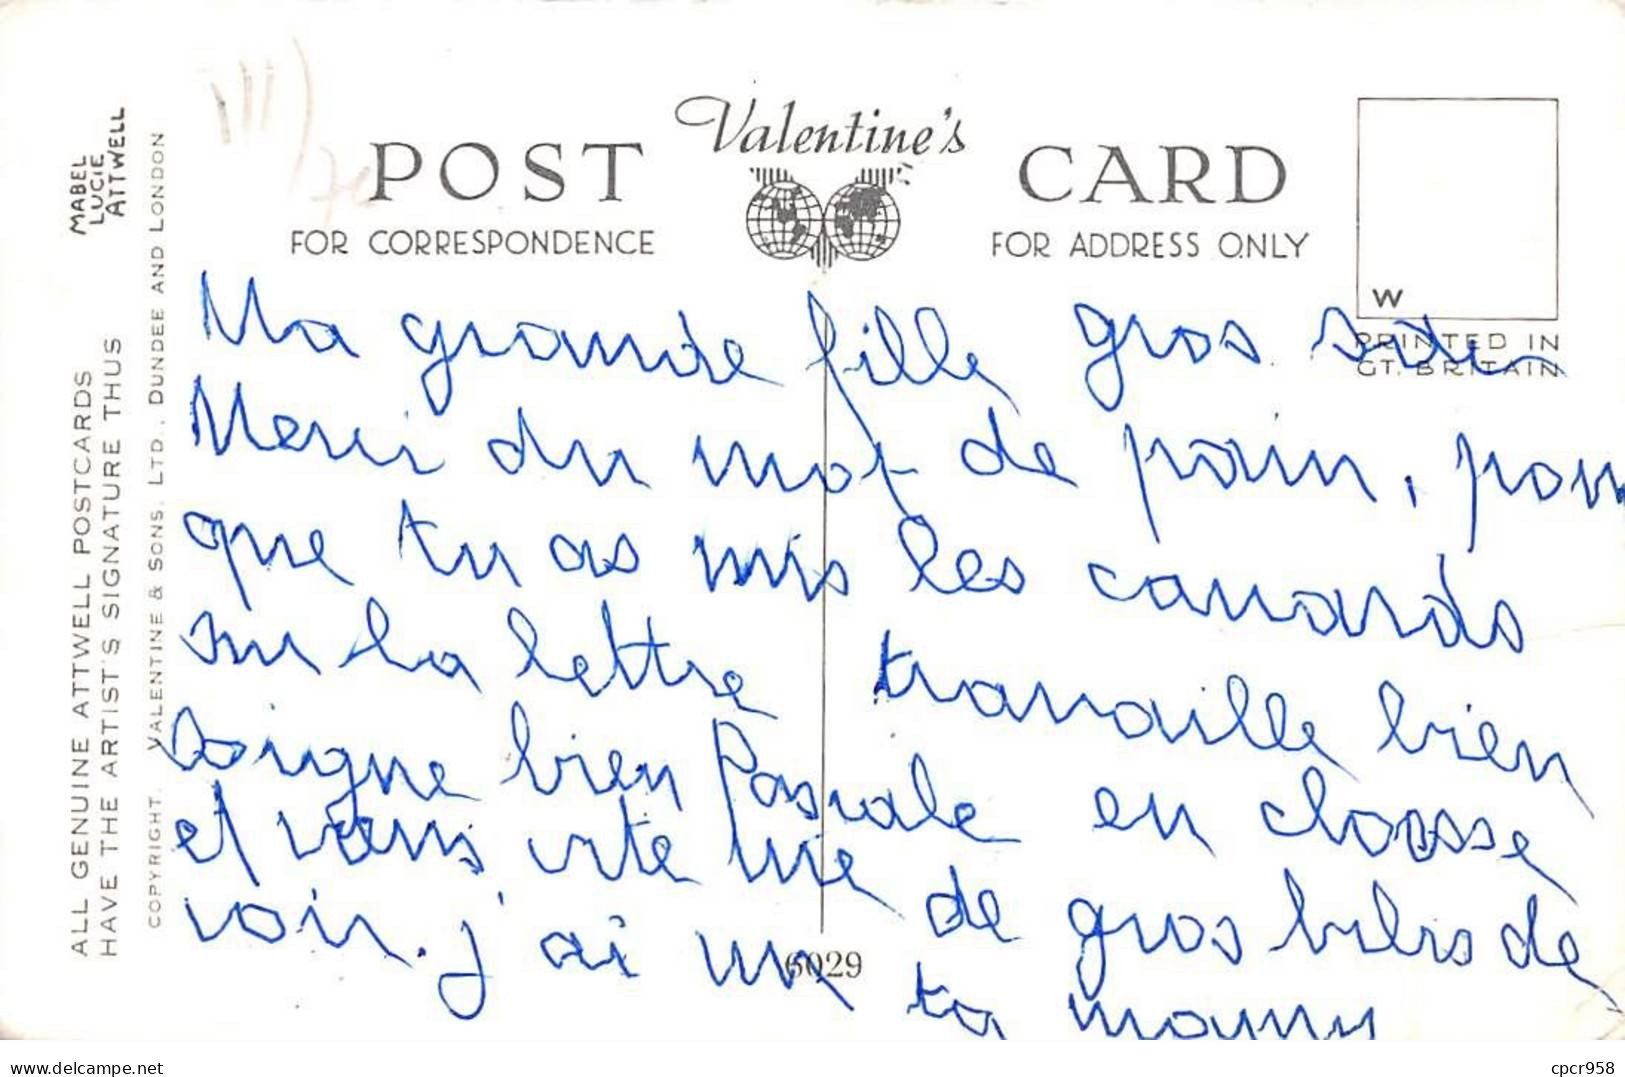 MABEL
LUCIE
ATTWELL
ALL GENUINE ATTWELL POSTCARDS
HAVE THE ARTIST'S SIGNATURE THUS
COPYRIGHT. VALENTINE & SONS. LTD., DUNDEE AND LONDON
Valentine's
POST CARD
FOR CORRESPONDENCE
FOR ADDRESS ONLY
W
PRINTED IN
GT. BRITAIN
Ma grande fille gros
Merci du mot de pain, pour
que tu as mis les canards
sur la lettre travaille bien
soigne bien Pascale en classe
et viens vite me
voir. j'ai de gros bibis de
ta mamy
6029
delcampe.net
cpcr958